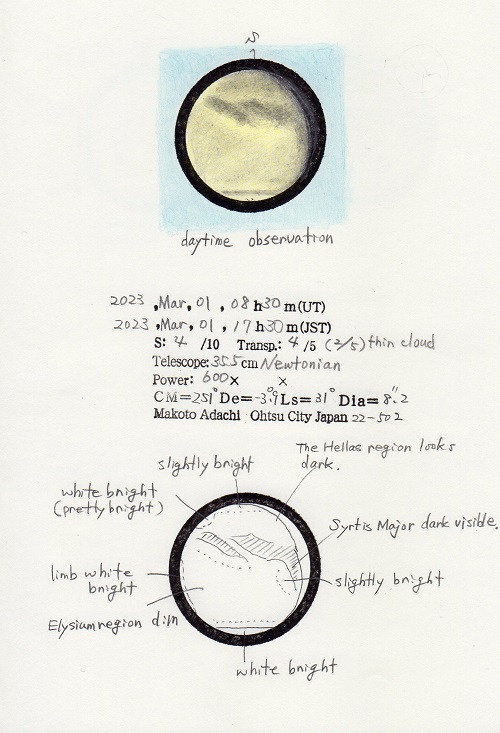 S
daytime observation
2023 , Mar, 01 , 08 h 30 m (UT)
2023 , Mar, 01 , 17 h 30 m (JST)
S: 4 /10 Transp.: 4 /5 (2/5) thin cloud
Telescope: 35.5 cm Newtonian
Power: 600× ×
CM=251° De=-3.°9 Ls=31° Dia=8."2
Makoto Adachi Ohtsu City Japan 22-502
The Hellas region looks
dark.
slightly bright
white bright
(pretty bright)
Syrtis Major dark visible.
limb white
bright
slightly bright
Elysium region dim
white bright